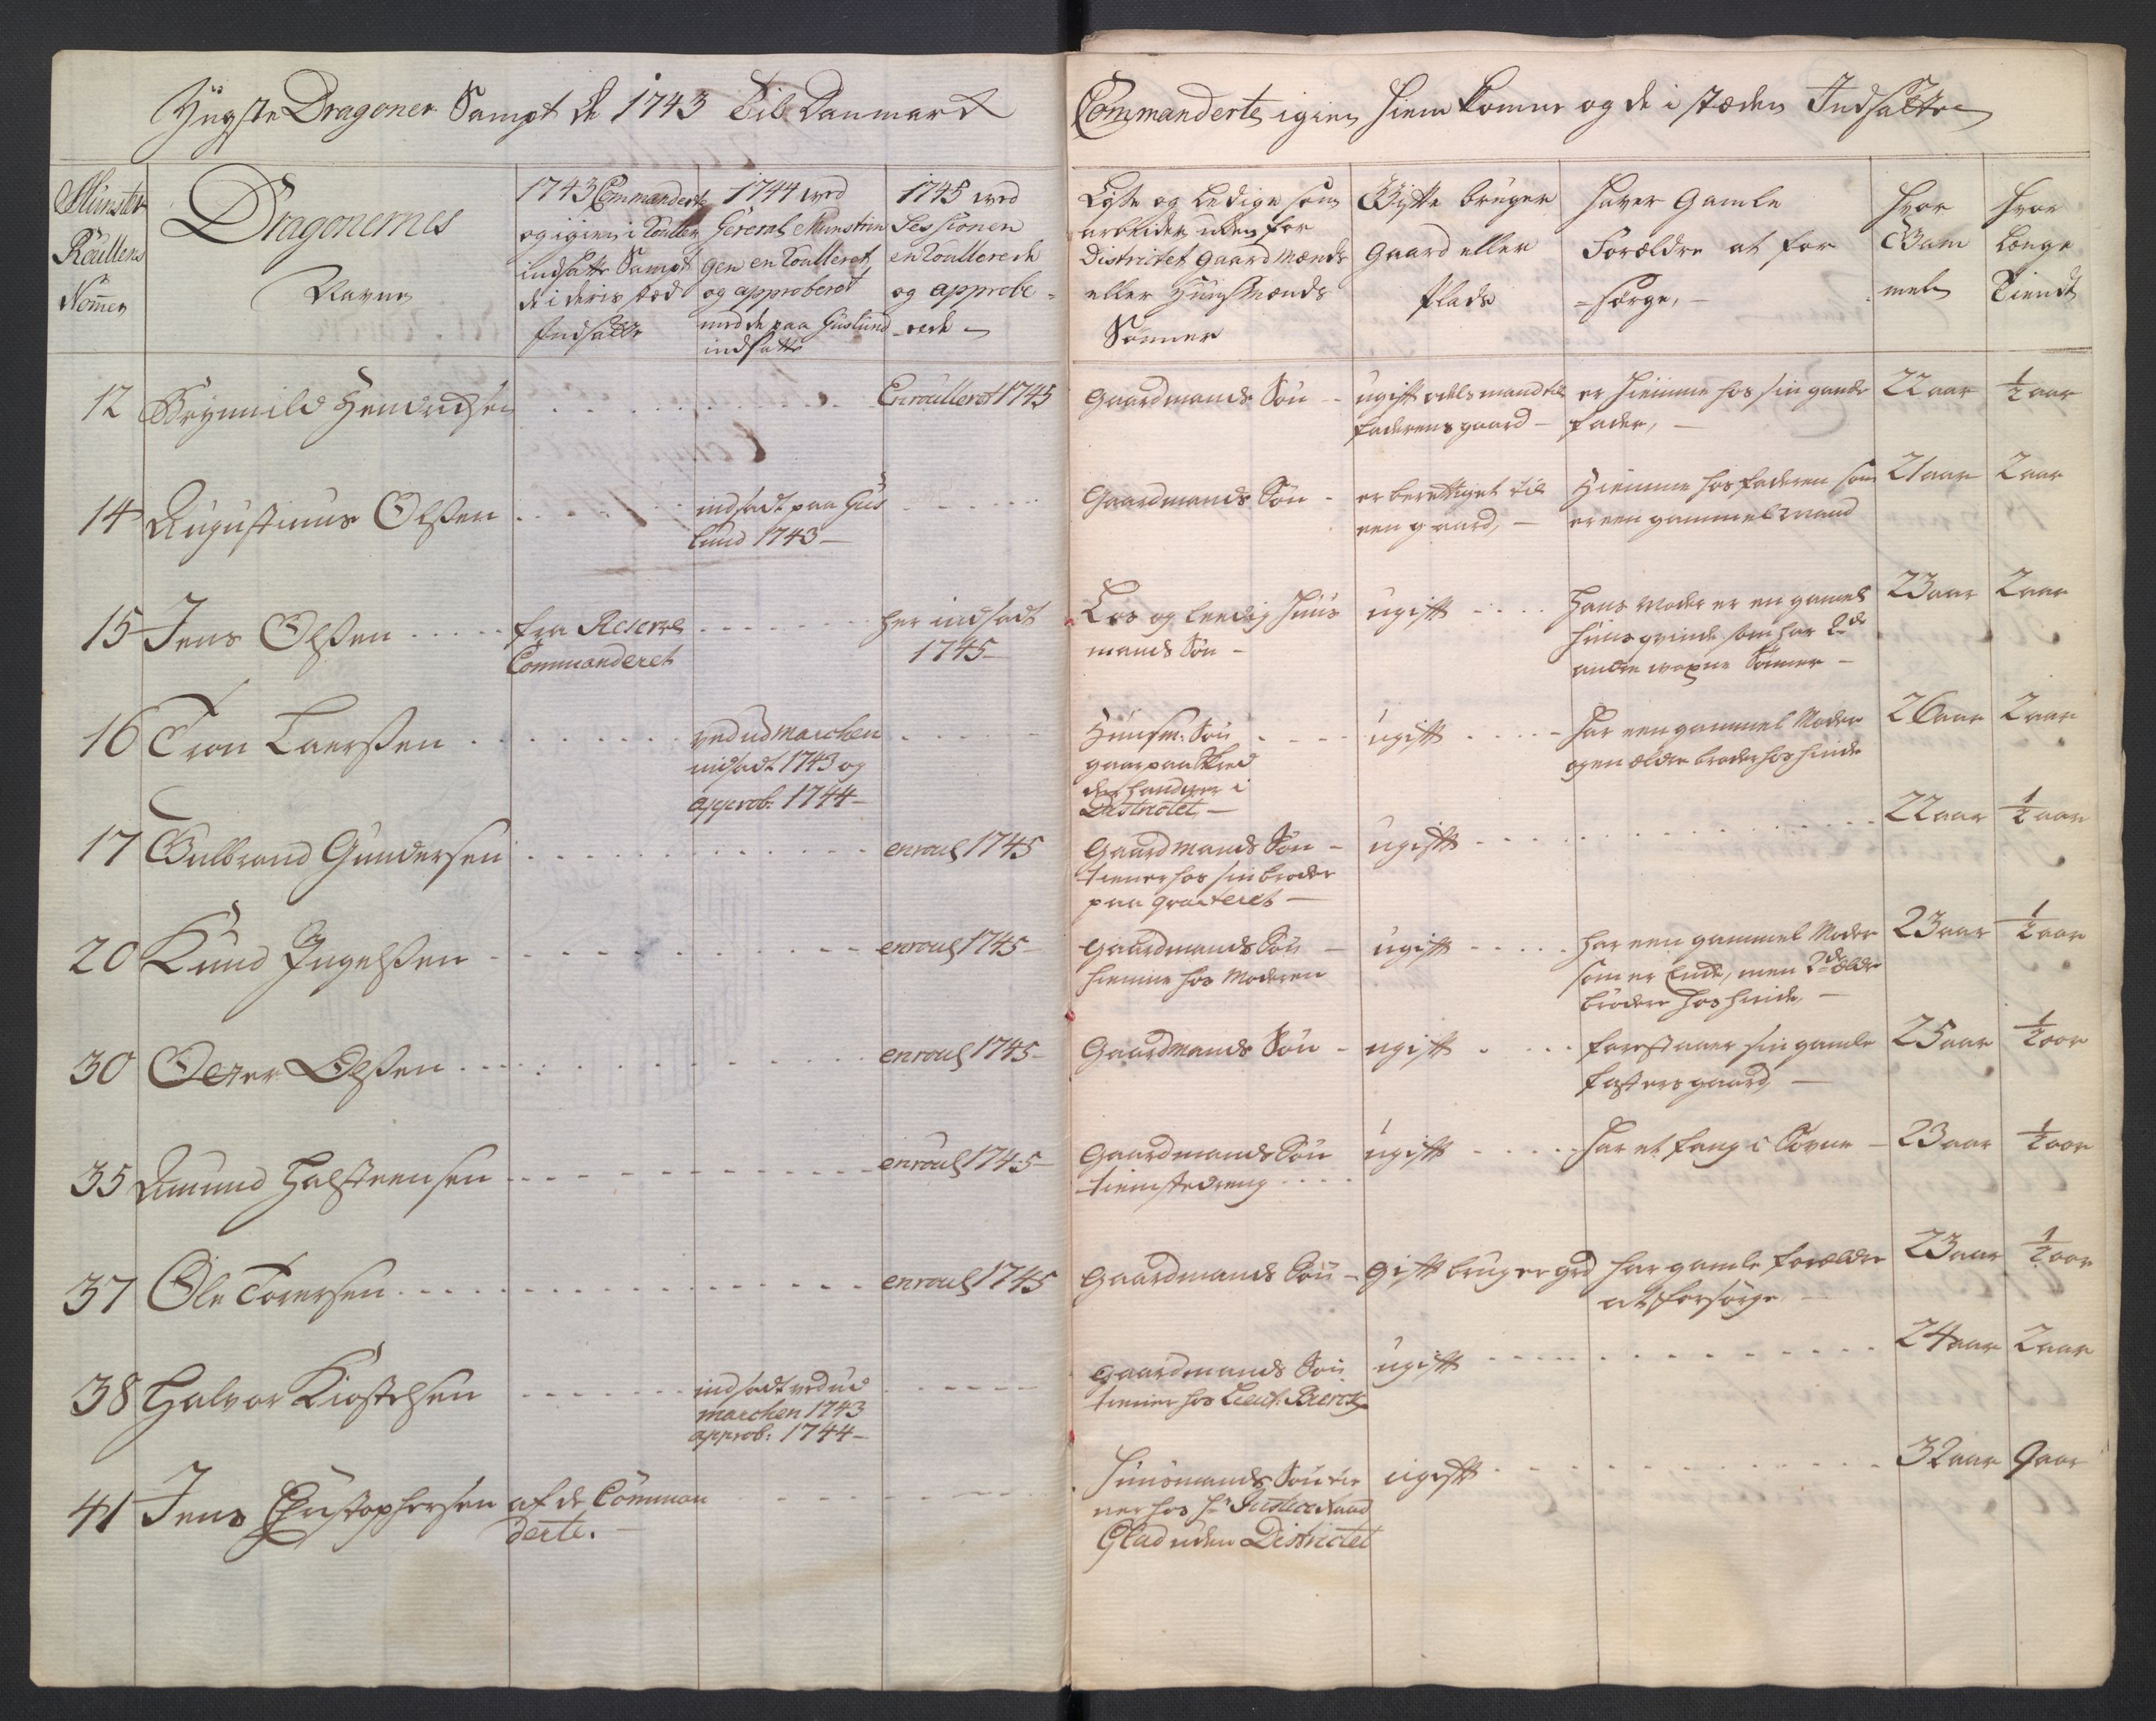 Yngste Dragoner Sampt de 1743 Til Danmark Commanderte igien hiemkomne og de i stæden Indsatte
Mùnster Roullens Nomer
Dragonernes Navne
1743 Commanderte og igien i Roullen indsatte Sampt de i deris stæd Indsatte
1744 ved General Munstringen enroulleret og approberet med de paa Guslund indsatte
1745 ved Sessionen enroullerede og approberede
Løse og Ledige som arbeider uden for Districtet Gaard Mænds eller Huus Mænds Sønner
Gifte brùger Gaard eller Plads
Haver Gamle Forældre at forsørge,
Hvor Gammel
Hvor længe Tiendt
12 Brynnild Hendrichsen
Enroulleret 1745
Gaardmands Søn
ugift odelsmand til faderens gaard
er hiemme hos sin gamle fader,
22 aar
½ aar
14 Augustinus Olßen
indsadt paa Guslund 1743
Gaardmands Søn
er berettiget til een gaard,
Hiemme hos faderen som er een gammel mand
21 aar
2 aar
15 Jens Olßen
fra Reserve Commanderet
her indsadt 1745
Løs og leedig huusmands Søn
ugift
Hans Moder er en gamel huusqvinde som har 2de andre voxne Sønner
23 aar
2 aar
16 Tron Laerßen
ved udmarchen indsadt 1743 og approb: 1744
Huusm: Søn gaar paa
Districtet
ugift
har een gammel Moder og en ældre broder hos hinde
26 aar
2 aar
17 Gulbrand Gundersen
enroul 1745
Gaardmands Søn tiener hos sin broder paa qvarteret
ugift
22 aar
½ aar
20 Knud Ingelßen
enroul 1745
Gaardmands Søn hiemme hos Moderen
ugift
har een gammel Moder som er Enke, men 2de ældre brødre hos hinde,
23 aar
½ aar
30 Peter Olßen
enroul 1745
Gaardmands Søn
ugift
forestaaer sin gamle fasters gaard,
25 aar
½ aar
35 Amund Halsteensen
enroul 1745
Gaardmands Søn tienistedreng
ugift
har et fang i
23 aar
½ aar
37 Ole Torersen
enroul 1745
Gaardmands Søn
Gift bruger grd
har gamle forældre at forsørge
23 aar
½ aar
38 Halvor Kiostelsen
indsadt ved udmarchen 1743 approb: 1744
Gaardmands Søn tiener hos Lieut:
ugift
24 aar
2 aar
41 Jens Christophersen
af de Commanderte.
Huusmands Søn tiener hos Hr Justice Raad Glad uden Districtet
ugift
32 aar
9 aar